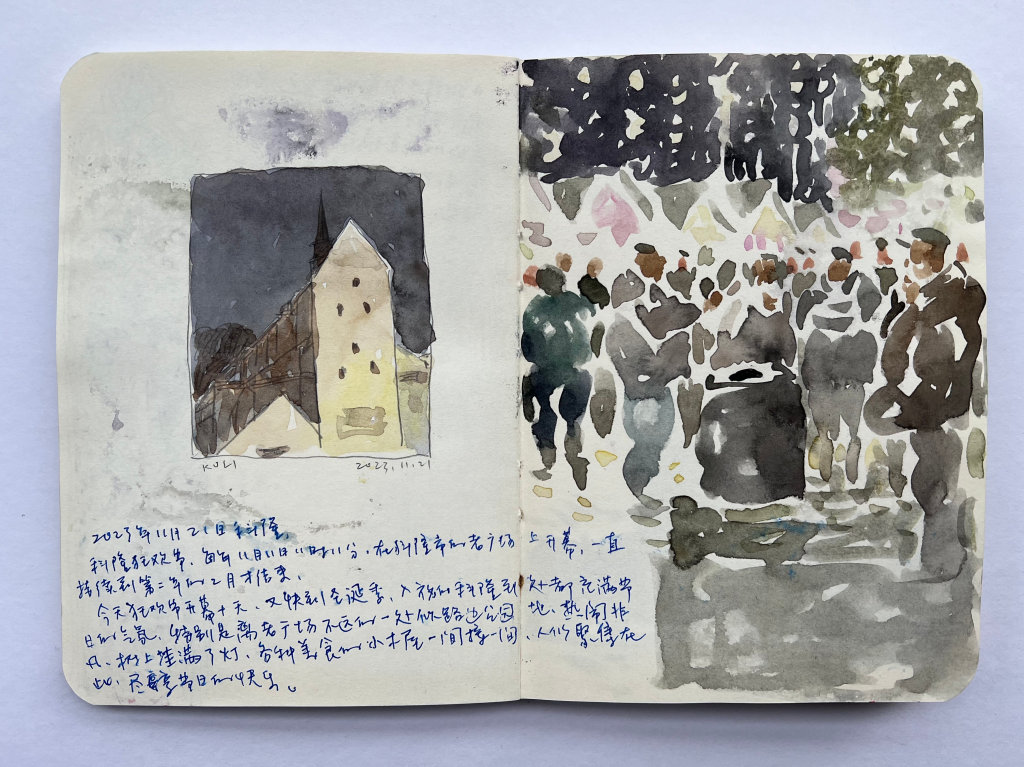 2023.11.21
2023年11月21日科隆。
科隆狂欢节,每年11月11日11时11分,在科隆市的老广场上开幕,一直
持续到第二年的2月才结束。
今天狂欢节开幕十天,又快到圣诞季,入夜的科隆到处都充满节
日的气氛,特别是离老广场不远的一处似路边公园地,热闹非
凡,树上挂满了灯,各种美食的小木屋一间接一间,人们聚集在
此,尽享节日的快乐。